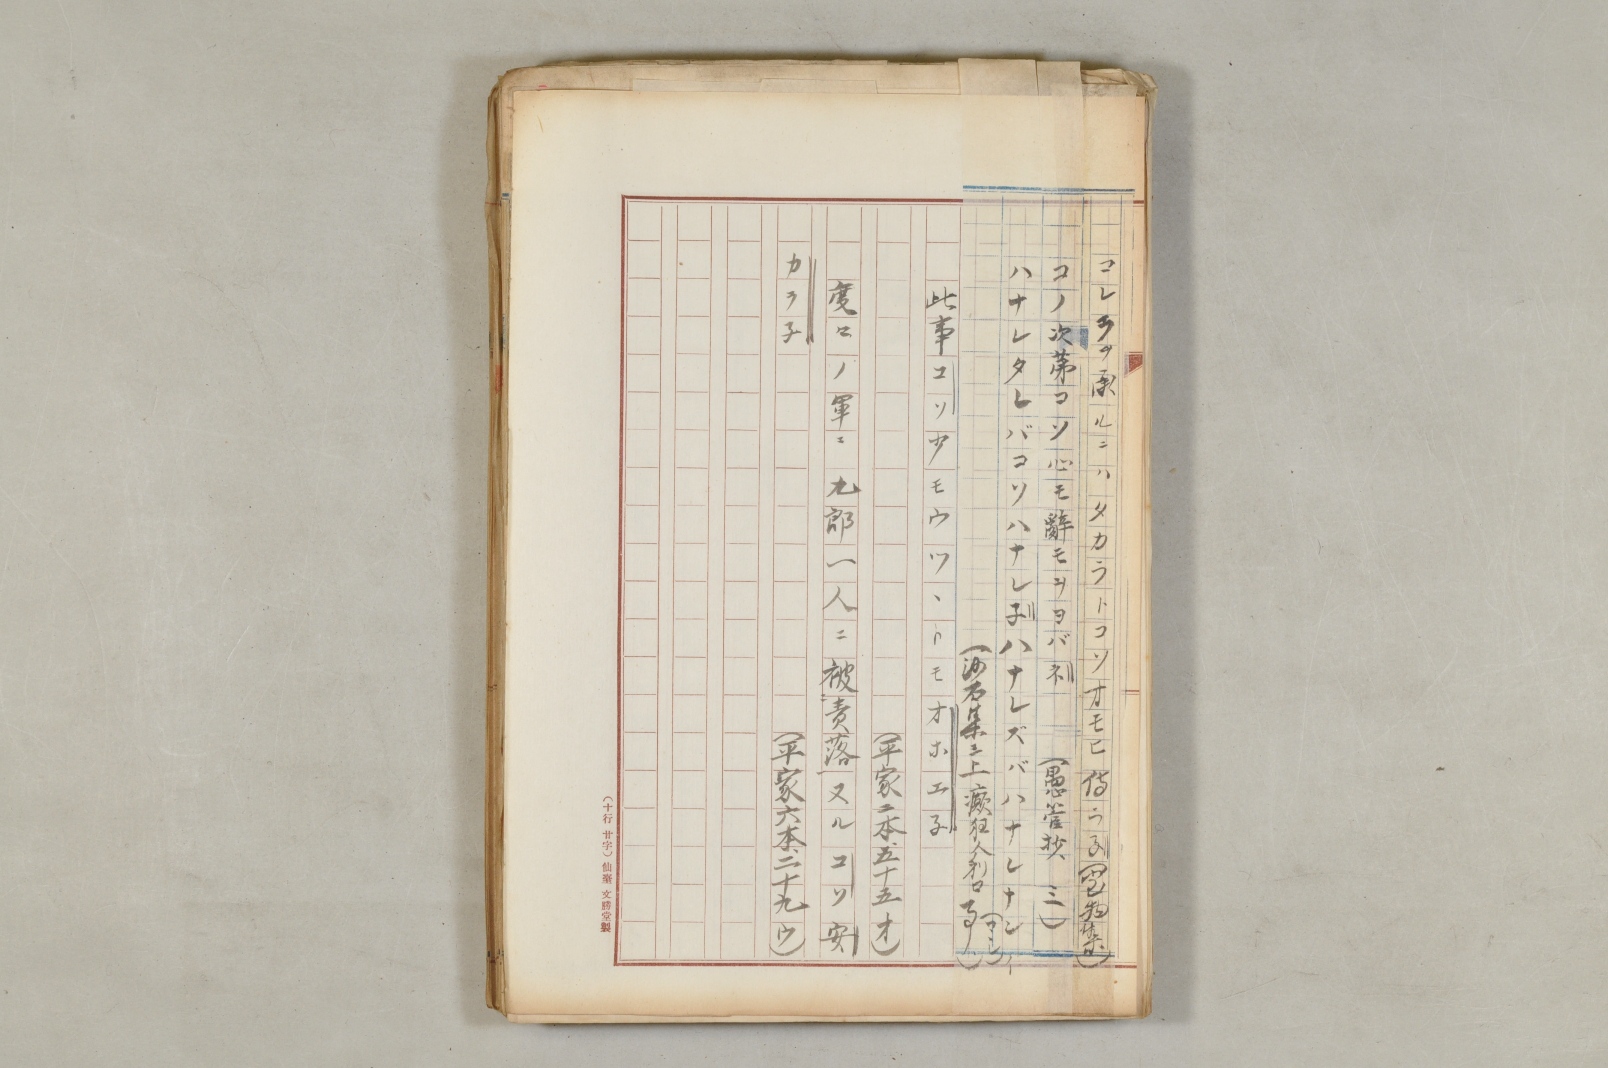 コレヲ承ルニハタカラトコソオモヒ侍ラ子(宝物集)
コノ次第コソ心モ辭モヲヨバネ (愚管抄 三)
ハナレタレバコソハナレ子ハナレズバハナレナント
(沙石集三上癲狂人利口事)
此事コソ少モウツヽトモオホエ子
(平家二本五十五オ)
度々ノ軍ニ九郎一人ニ被責落ヌルコソ安
カラ子
(平家六本、二十九ウ)
(十行 廿字) 仙臺 文勝堂製